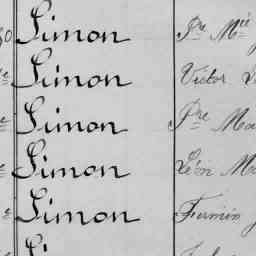 Simon Pre Mie
Simon Victor
Simon Pre Ma
Simon Léon Ma
Simon Firmin J